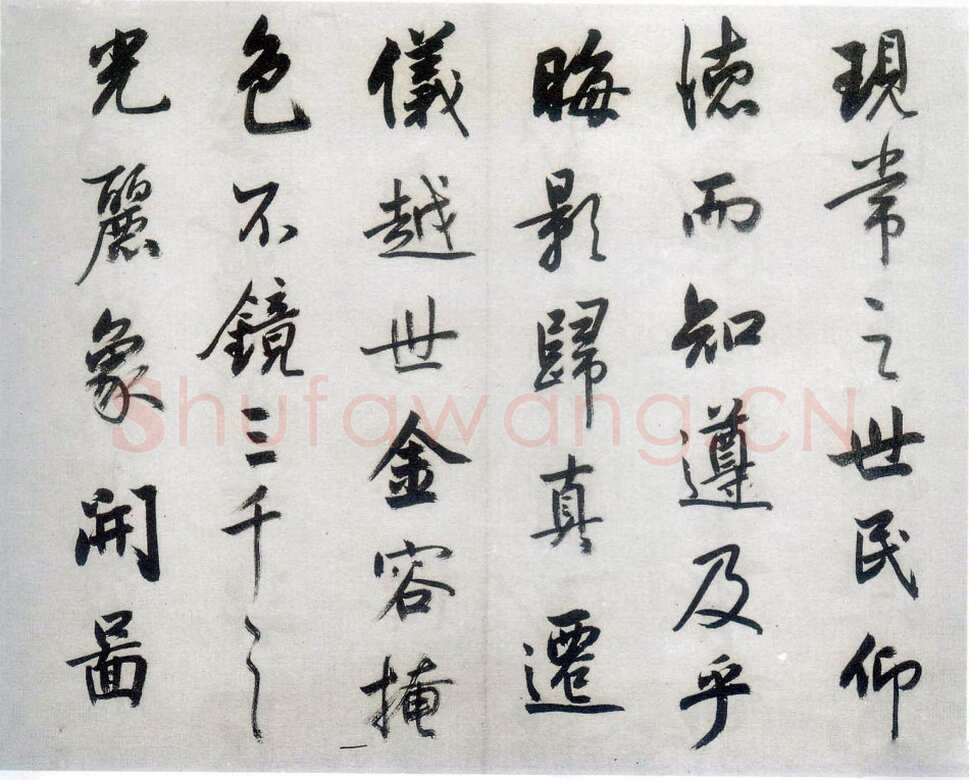 現常之世民仰
徳而知遵及乎
晦影歸真遷
儀越世金容掩
色不鏡三千之
光麗象開圖
Shufawang.CN